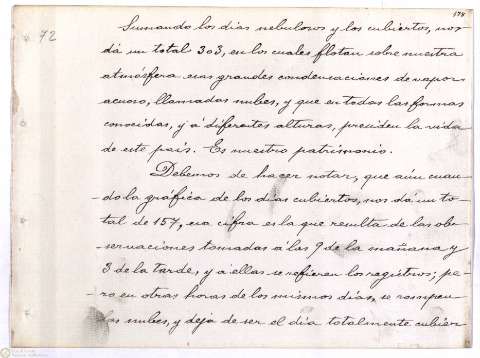 178
72
Sumando los dias nebulosos y los cubiertos, nos
dá un total 303, en los cuales flotan sobre nuestra
atmósfera esas grandes condensaciones de vapor
acuoso, llamadas nubes, y que en todas las formas
conocidas, y á diferentes alturas, presiden la vida
de este país. Es nuestro patrimonio.
Debemos de hacer notar, que aún cuan-
do la gráfica de los días cubiertos, nos dá un to-
tal de 157, esa cifra es la que resulta de las ob-
-servaciones tomadas á las 9 de la mañana y
3 de la tarde, y á ellas se refieren los registros; pe-
-ro en otras horas de los mismos días, se rompen
las nubes, y deja de ser el día totalmente cubier